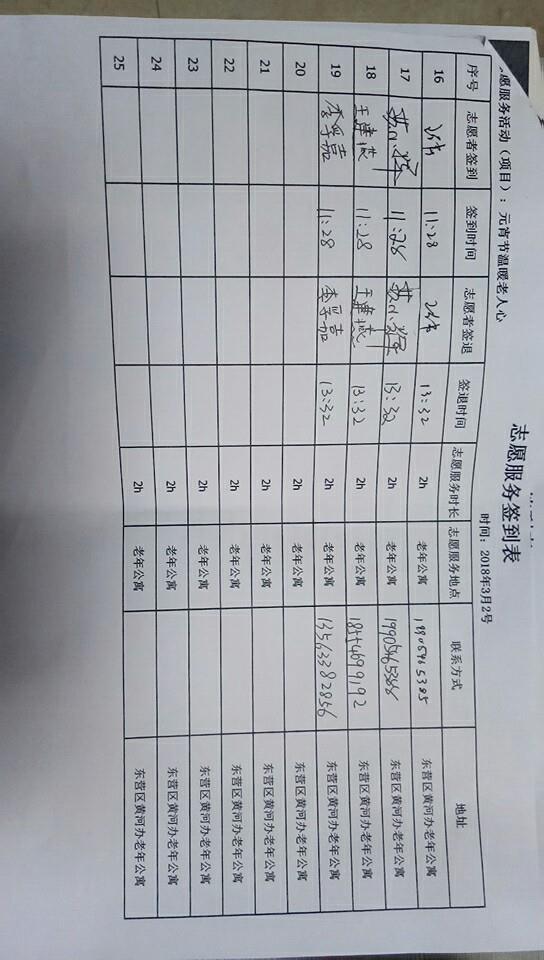 志愿服务签到表
时间：2018年3月2号
愿服务活动（项目）：元宵节温暖老人心
序号 志愿者签到 签到时间 志愿者签退 签退时间 志愿服务时长 志愿服务地点 联系方式 地址
16 11:28 13:32 2h 老年公寓 东营区黄河办老年公寓
17 11:28 13:32 2h 老年公寓 东营区黄河办老年公寓
18 11:28 13:32 2h 老年公寓 18554699192 东营区黄河办老年公寓
19 11:28 13:32 2h 老年公寓 13563382856 东营区黄河办老年公寓
20 2h 老年公寓 东营区黄河办老年公寓
21 2h 老年公寓 东营区黄河办老年公寓
22 2h 老年公寓 东营区黄河办老年公寓
23 2h 老年公寓 东营区黄河办老年公寓
24 2h 老年公寓 东营区黄河办老年公寓
25 2h 老年公寓 东营区黄河办老年公寓